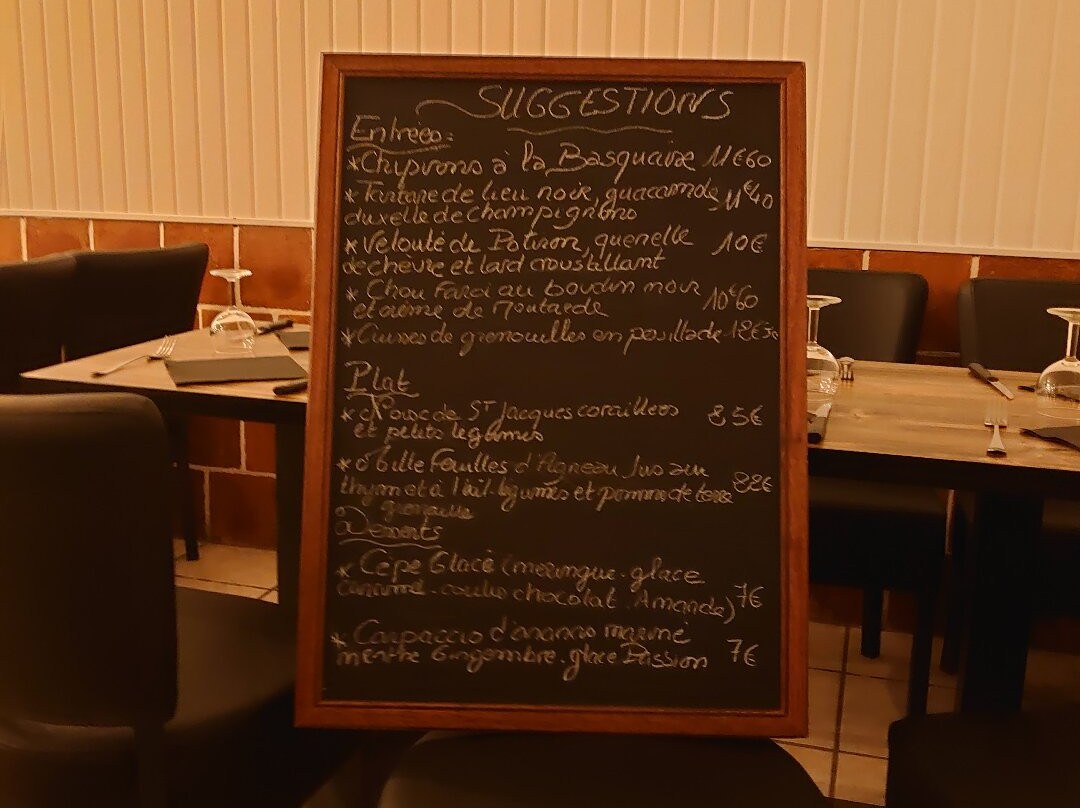 SUGGESTIONS
Entrées:
*Chipirons à la Basquaise 11€60
*Tartare de lieu noir, guacamole 11€40
duxelle de champignons
*Velouté de Potiron, quenelle 10€
de chèvre et lard croustillant
*Chou Farci au boudin noir 10€60
et crème de Moutarde
*Cuisses de grenouilles en persillade
Plat
* de St Jacques coraillées
et petits légumes
*Mille Feuilles d'Agneau Jus au
thym et à l'ail. légumes et pomme de terre
grenaille
Desserts
* Cèpe Glacé (meringue. glace
caramel. coulis chocolat. Amande) 7€
* Carpaccio d'ananas mariné 7€
menthe Gingembre. glace Passion